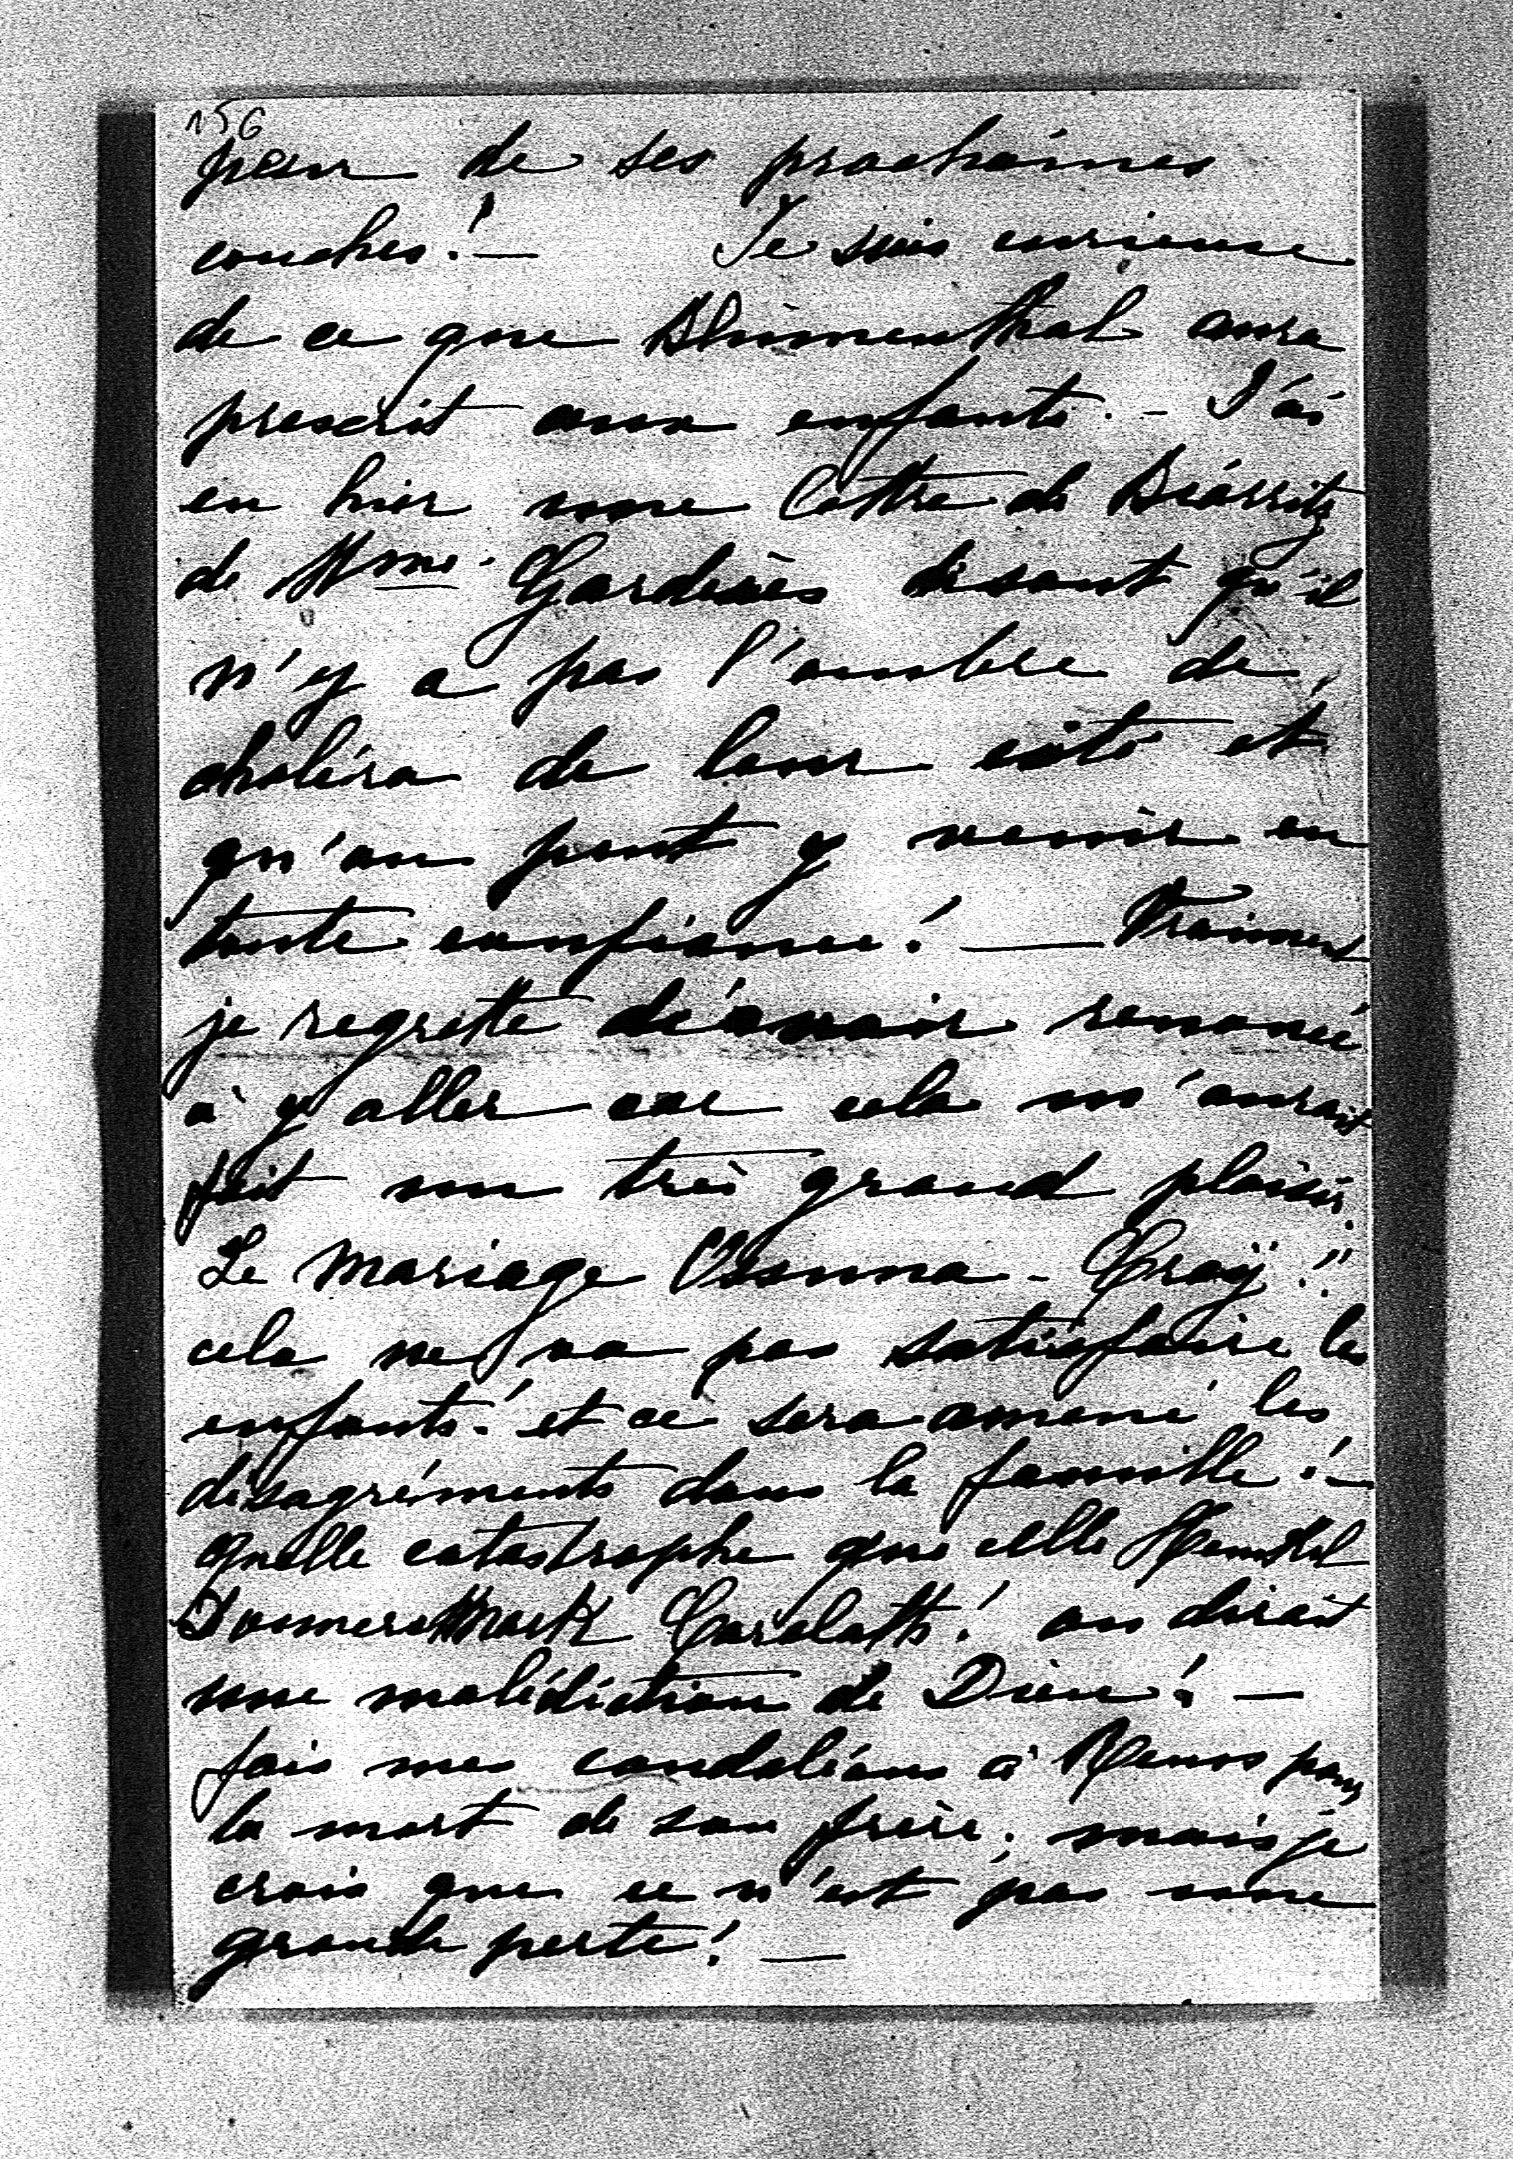 156
peur de ses prochaines
couches! — Je suis curieuse
de ce que Blumenthal aura
prescrit aux enfants. – J'ai
eu hier une lettre de Biarritz
de Mme. Gardères disant qu'il
n'y a pas l'ombre de
choléra de leur côté et
qu'on peut y venir en
toute confiance! — Vraiment
je regrette d'avoir renoncé
à y aller car cela m'aurait
fait un très grand plaisir.
Le mariage Ossuna - Croÿ!!
cela ne va pas satisfaire les
enfants! et ce sera amené les
désagréments dans la famille! –
quelle catastrophe que celle Henckel
Donnersmark Garolath! on dirait
une malédiction de Dieu! —
fais mes condoléans à pour
la mort de son frère. mais je
crois que ce n'est pas une
grande perte! —